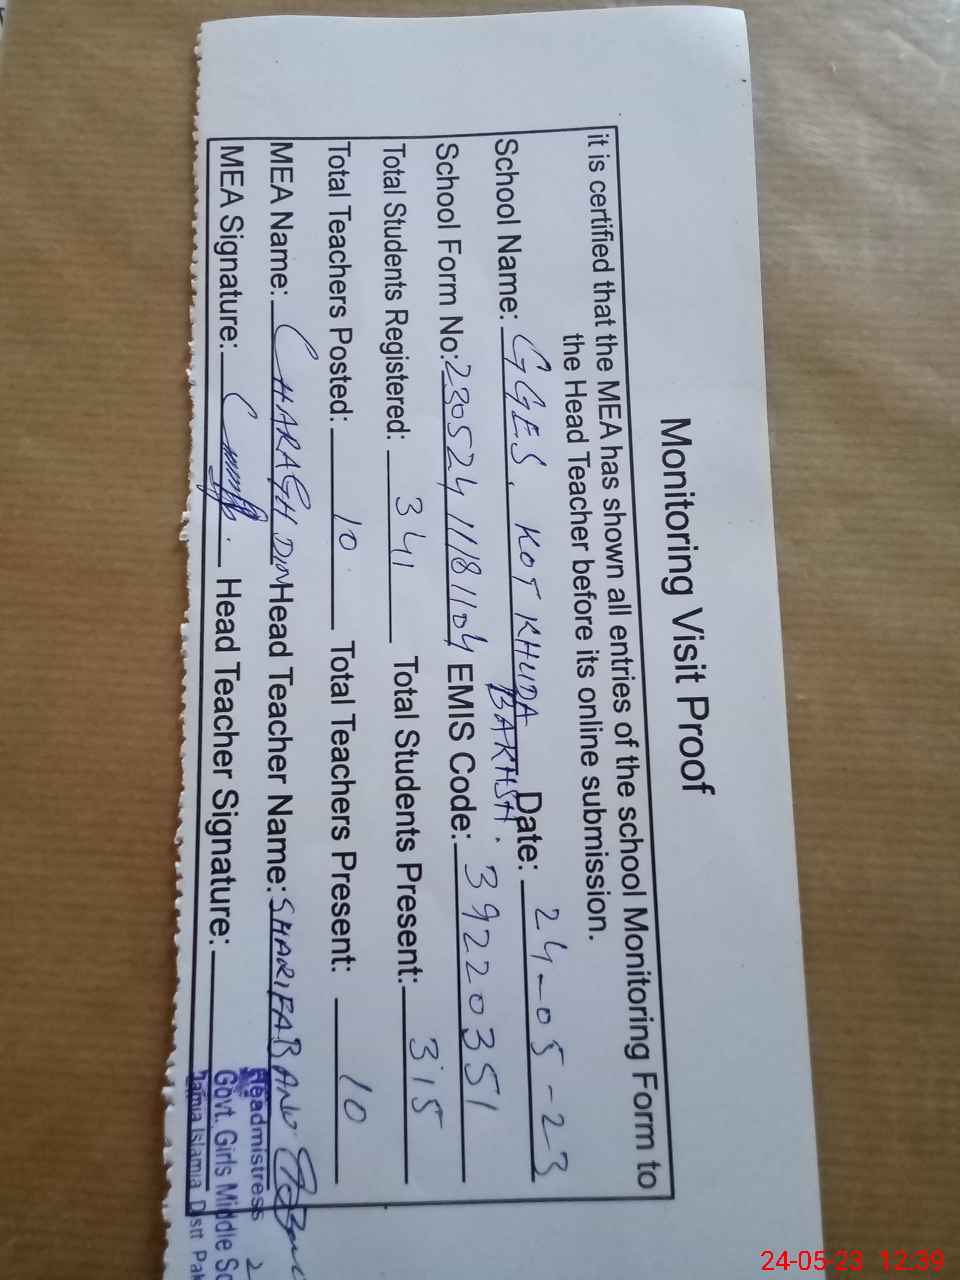 Monitoring Visit Proof
it is certified that the MEA has shown all entries of the school Monitoring Form to
the Head Teacher before its online submission.
School Name: GGES. KOT KHUDA BAKHSH. Date: 24-05-23
School Form No: 23052411181104 EMIS Code: 39220351
Total Students Registered: 341 Total Students Present: 315
Total Teachers Posted: 10 Total Teachers Present: 10
MEA Name: CHARAGH DIN Head Teacher Name: SHARIFAB ANO
MEA Signature: Head Teacher Signature:
Headmistress 2
Govt. Girls Middle Sc
Jamia Islamia Distt Pak
24-05-23 12:39